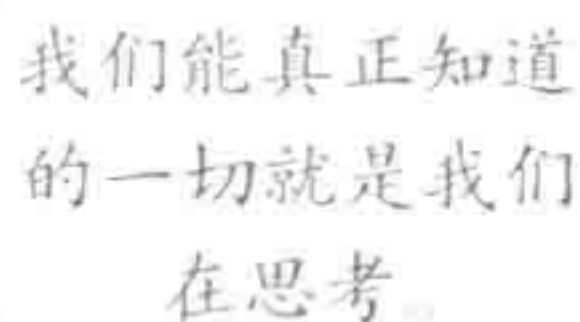 我们能真正知道
的一切就是我们
在思考